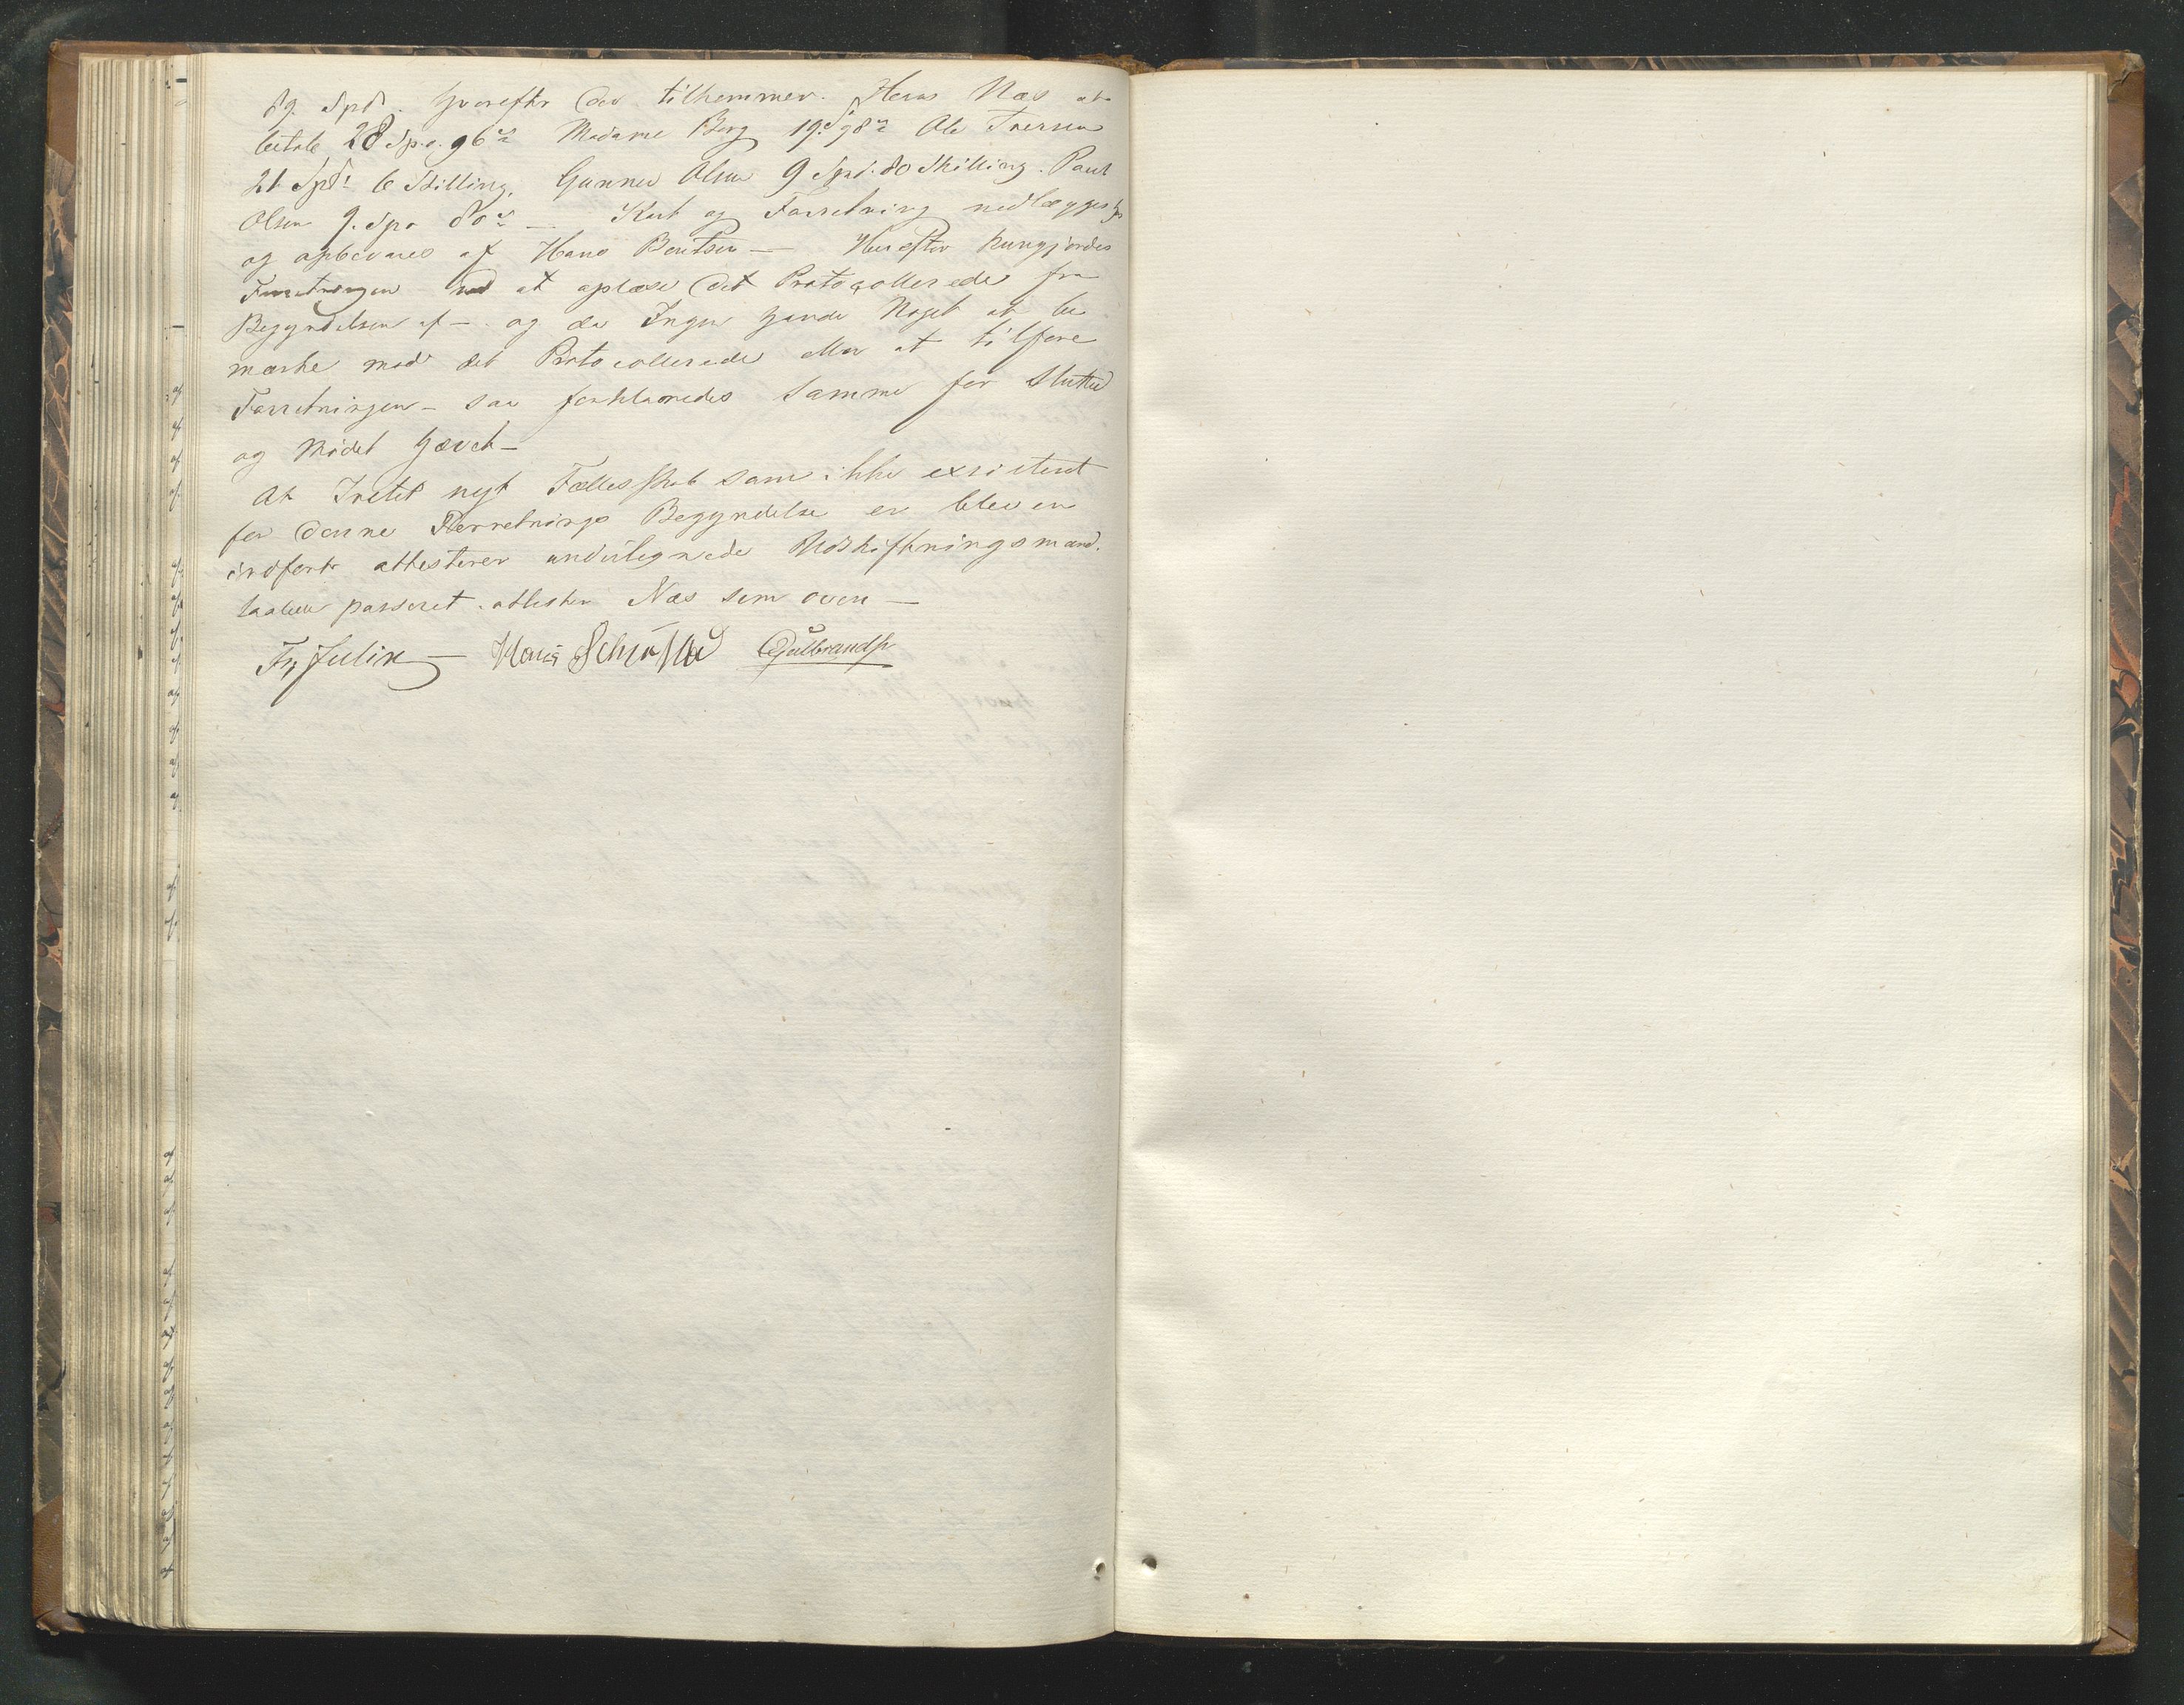 89. Spd. hvorefter Det tilkommer. Hans Næs at
betale 28 Spd. 96 s Madame Berg 19. S 98 s Ole Iversen
21 Spd. 6 Skilling, Gunner Olsen 9 Spd. 80 Skilling. Paul
Olsen 9. Spd 80 s — Kart og Forretning nedlægges hos
og opbevares af Hans Bentsen — Herefter kungjordes
Forretningen ved at oplæse det Protocollerede fra
Begyndelsen af — og da Ingen havde Noget at be
mærke mod det Protocollerede eller at tilføre
Forretningen — saa forklaredes Samme for Sluttet
og Mødet hævet —
At Intet nyt Fællesskab som ikke existeret
før denne Forretnings Begyndelse er bleven
indført attesterer undertegnede Udskiftningsmænd.
saalede passeret. attester Næs som oven —
Hans Gulbrands